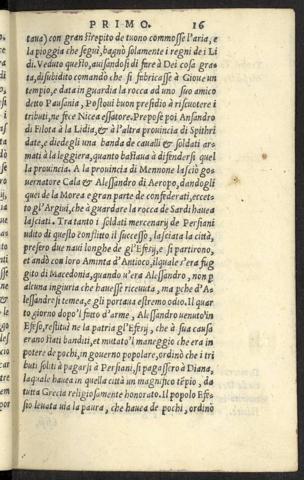 PRIMO. 16
taua) con gran strepito di tuono commosse l'aria, e
la pioggia che seguì, bagnò solamente i regni de i Li
di. Veduto questo, ausandosi di fare à Dei cosa gra
ta, disubidito comandò che si fabricasse à Gioue un
tempio, e data in guardia la rocca ad uno suo amico
detto Pausania, Postoui buon presidio à riscuotere i
tributi, ne fece Nicea essatore. Prepose poi Ansandro
di Filota à la Lidia, & à l'altra prouincia di Spithri
date, e diedegli una banda de caualli & soldati ar-
mati à la leggiera, quanto bastaua à difendersi quel
la prouincia. A la prouincia di Mennone lasciò go-
uernatore Cala & Alessandro di Aeropo, dandogli
quei de la Morea e gran parte de confederati, eccet-
to gl'Argiui, che à guardare la rocca de Sardi hauea
lasciati. Tra tanto i soldati mercenarij de Persiani
udito di questo conflitto il successo, lasciata la città,
presero due naui longhe de gl'Efesij, e si partirono,
et andò con loro Aminta d'Antioco, il quale s'era fug
gito di Macedonia, quando u'era Alessandro, non p
alcuna ingiuria che hauesse riceuuta, ma pche d'A-
lessandro si temea, e gli portaua estremo odio. Il quar
to giorno dopo l'fatto d'arme, Alessandro uenuto in
Efeso, restituì ne la patria gl'Efesij, che à sua causa
erano stati banditi, et mutato l'maneggio che era in
potere de pochi, in gouerno popolare, ordinò che i tri
buti soliti à pagarsi à Persiani, si pagassero à Diana,
laquale hauea in quella città un magnifico tẽpio, da
tutta Grecia religiosamente honorato. Il popolo Efe
sio leuata uia la paura, che hauea de pochi, ordinò